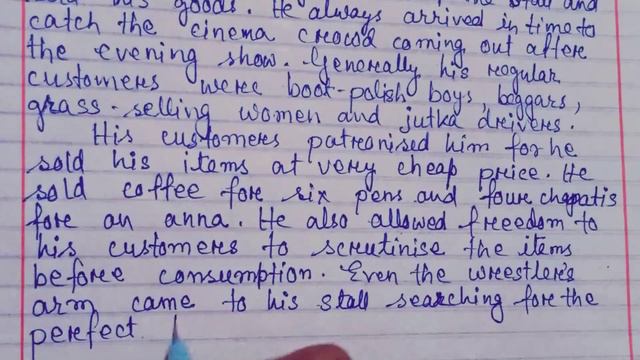 his goods. He always arrived in time to
catch the cinema crowd coming out after
the evening show. Generally his regular
customers were boot-polish boys, beggars,
grass-selling women and jutka drivers.
His customers patronised him for he
sold his items at very cheap price. He
sold coffee for six pens and four chapatis
for an anna. He also allowed freedom to
his customers to scrutinise the items
before consumption. Even the wrestler's
arm came to his stall searching for the
perfect